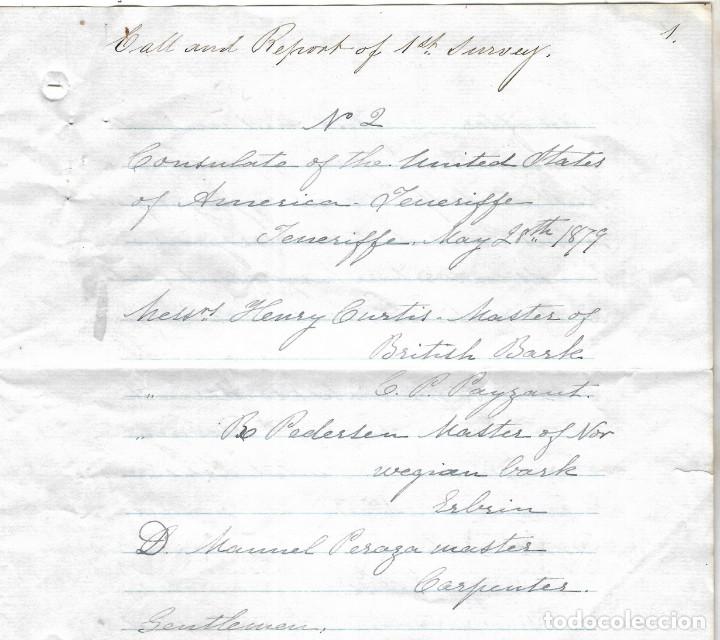 1.
Call and Report of 1st. Survey.
No 2
Consulate of the United States
of America - Teneriffe
Teneriffe. May 28th 1879
Messrs Henry Curtis - Master of
British Bark
" C. P. Payzant.
" B Pedersen Master of Nor
wegian bark
Erbrin
D. Manuel Peraza master
Carpenter.
Gentlemen,
todocoleccion